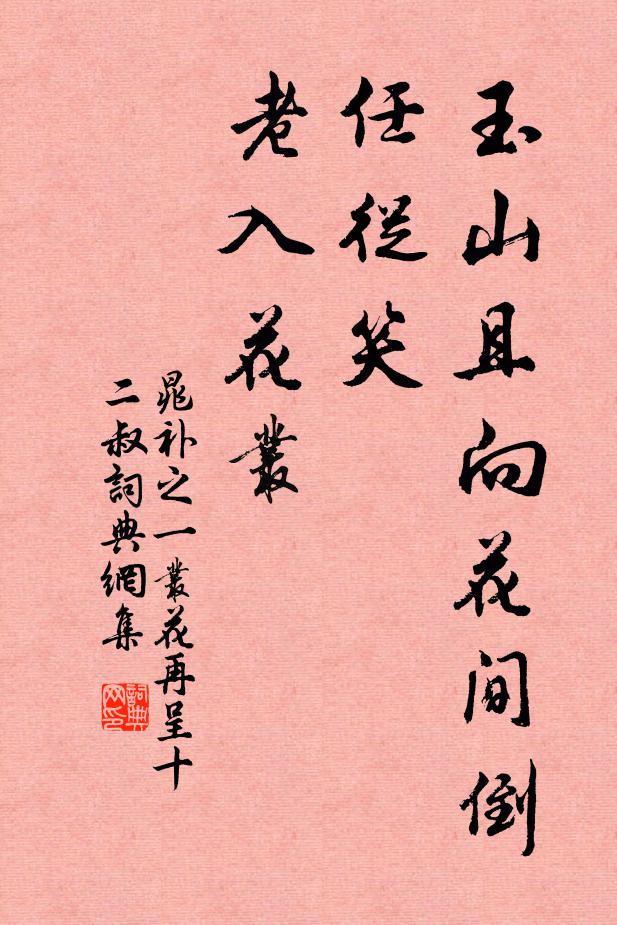 玉山且向花間倒
任從笑
老入花叢
晁补之一叢花再呈十
二叔詞典網集
詞典
网印